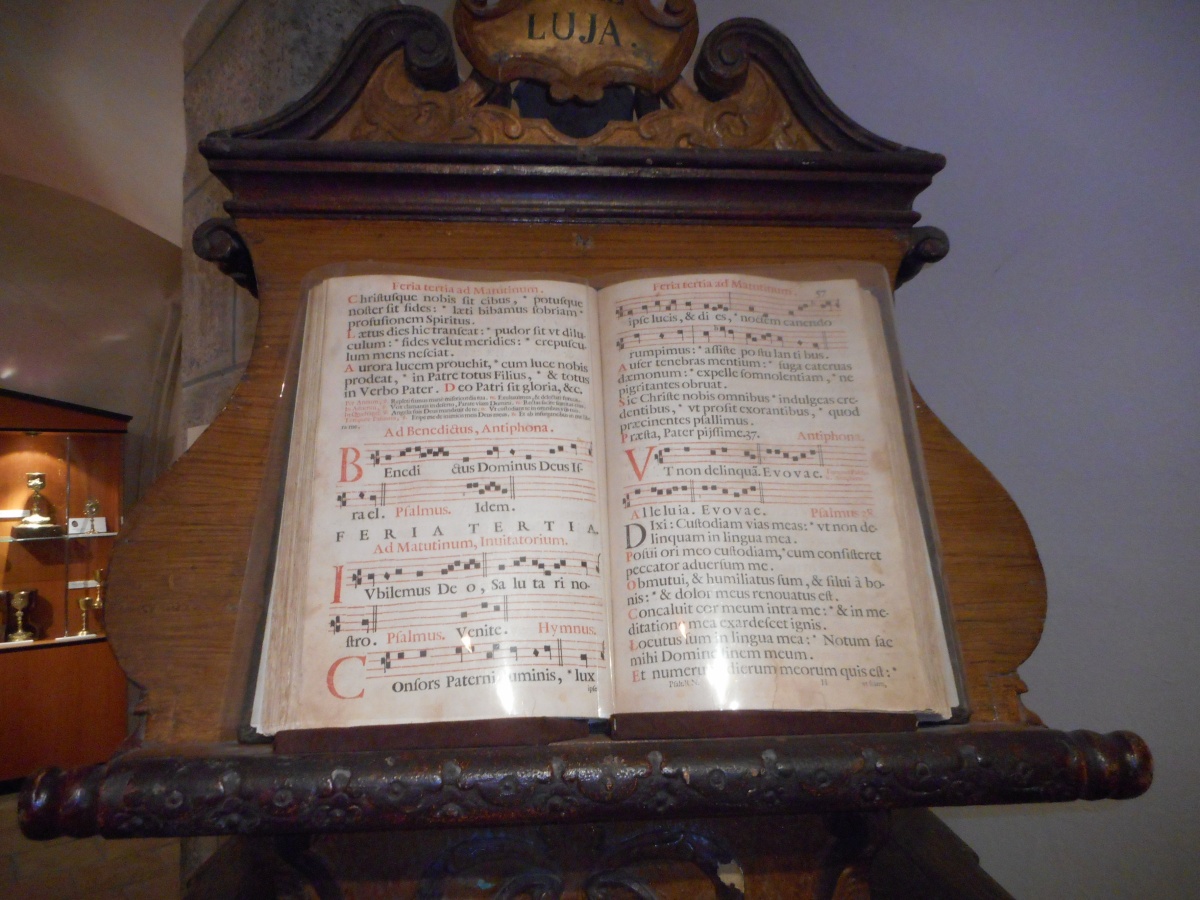 LUJA.
Feria tertia ad Matutinum.
Chriſtuſque nobis ſit cibus, * potuſque
noſter ſit fides: * læti bibamus ſobriam *
profuſionem Spiritus.
Lætus dies hic tranſeat: * pudor ſit vt dilu-
culum: * fides velut meridies: * crepuſcu-
lum mens neſciat.
Aurora lucem prouehit, * cum luce nobis
prodeat, * in Patre totus Filius, * & totus
in Verbo Pater. Deo Patri ſit gloria, &c.
Ad Benedictus, Antiphona.
BEnedi ctus Dominus Deus Iſ-
rael. Pſalmus. Idem.
FERIA TERTIA.
Ad Matutinum, Inuitatorium.
IVbilemus De o, Sa lu ta ri no-
ſtro. Pſalmus. Venite. Hymnus.
COnſors Paterni luminis, * lux
ipſe
Feria tertia ad Matutinum. 37
ipſe lucis, & di es, * noctem canendo
rumpimus: * aſſiſte po ſtu lan ti bus.
Aufer tenebras mentium: * fuga cateruas
dæmonum: * expelle ſomnolentiam, * ne
pigritantes obruat.
Sic Chriſte nobis omnibus * indulgeas cre-
dentibus, * vt proſit exorantibus, * quod
præcinentes pſallimus.
Præſta, Pater pijſſime. 37. Antiphona.
VT non delinquã. Evovae.
Alleluia. Evovae. Pſalmus 38.
DIxi: Cuſtodiam vias meas: * vt non de-
linquam in lingua mea.
Poſui ori meo cuſtodiam, * cum conſiſteret
peccator aduerſum me.
Obmutui, & humiliatus ſum, & ſilui à bo-
nis: * & dolor meus renouatus eſt.
Concaluit cor meum intra me: * & in me-
ditatione mea exardeſcet ignis.
Locutus ſum in lingua mea: * Notum fac
mihi Domine finem meum.
Et numerum dierum meorum quis eſt: *